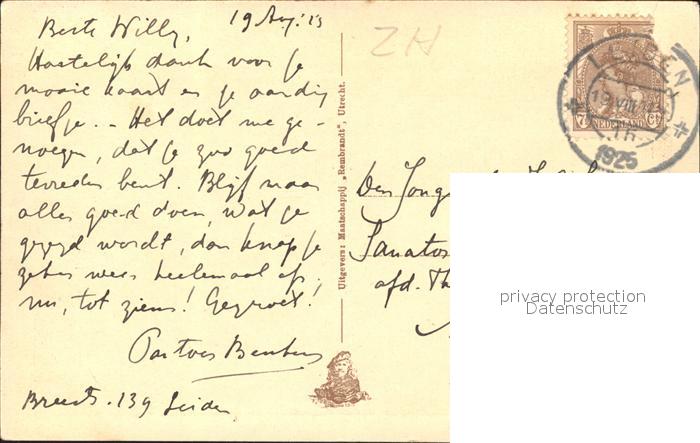 19 Aug. '25
Beste Willy,
Hartelijk dank voor je
mooie kaart en je aardig
briefje. – Het doet me ge-
noegen, dat je zoo goed
tevreden bent. Blijf maar
alles goed doen, wat je
gezegd wordt, dan knap je
zeker weer heelemaal op.
nu, tot ziens! Gegroet!
Pastoor
Breestr. 139 Leiden
Uitgevers: Maatschappij „Rembrandt", Utrecht.
ZH
LEIDEN
1925
7½ Ct
NEDERLAND
Den Jong
Sanato
afd. Th
privacy protection
Datenschutz